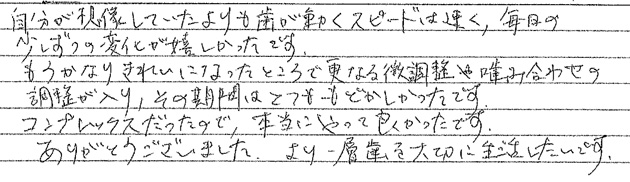 自分が想像していたよりも歯が動くスピードは速く、毎日の
少しずつの変化が嬉しかったです。
もうかなりきれいになったところで更なる微調整や噛み合わせの
調整が入り、その期間はとてももどかしかったです。
コンプレックスだったので、本当にやって良かったです。
ありがとうございました。より一層歯を大切に生活したいです。